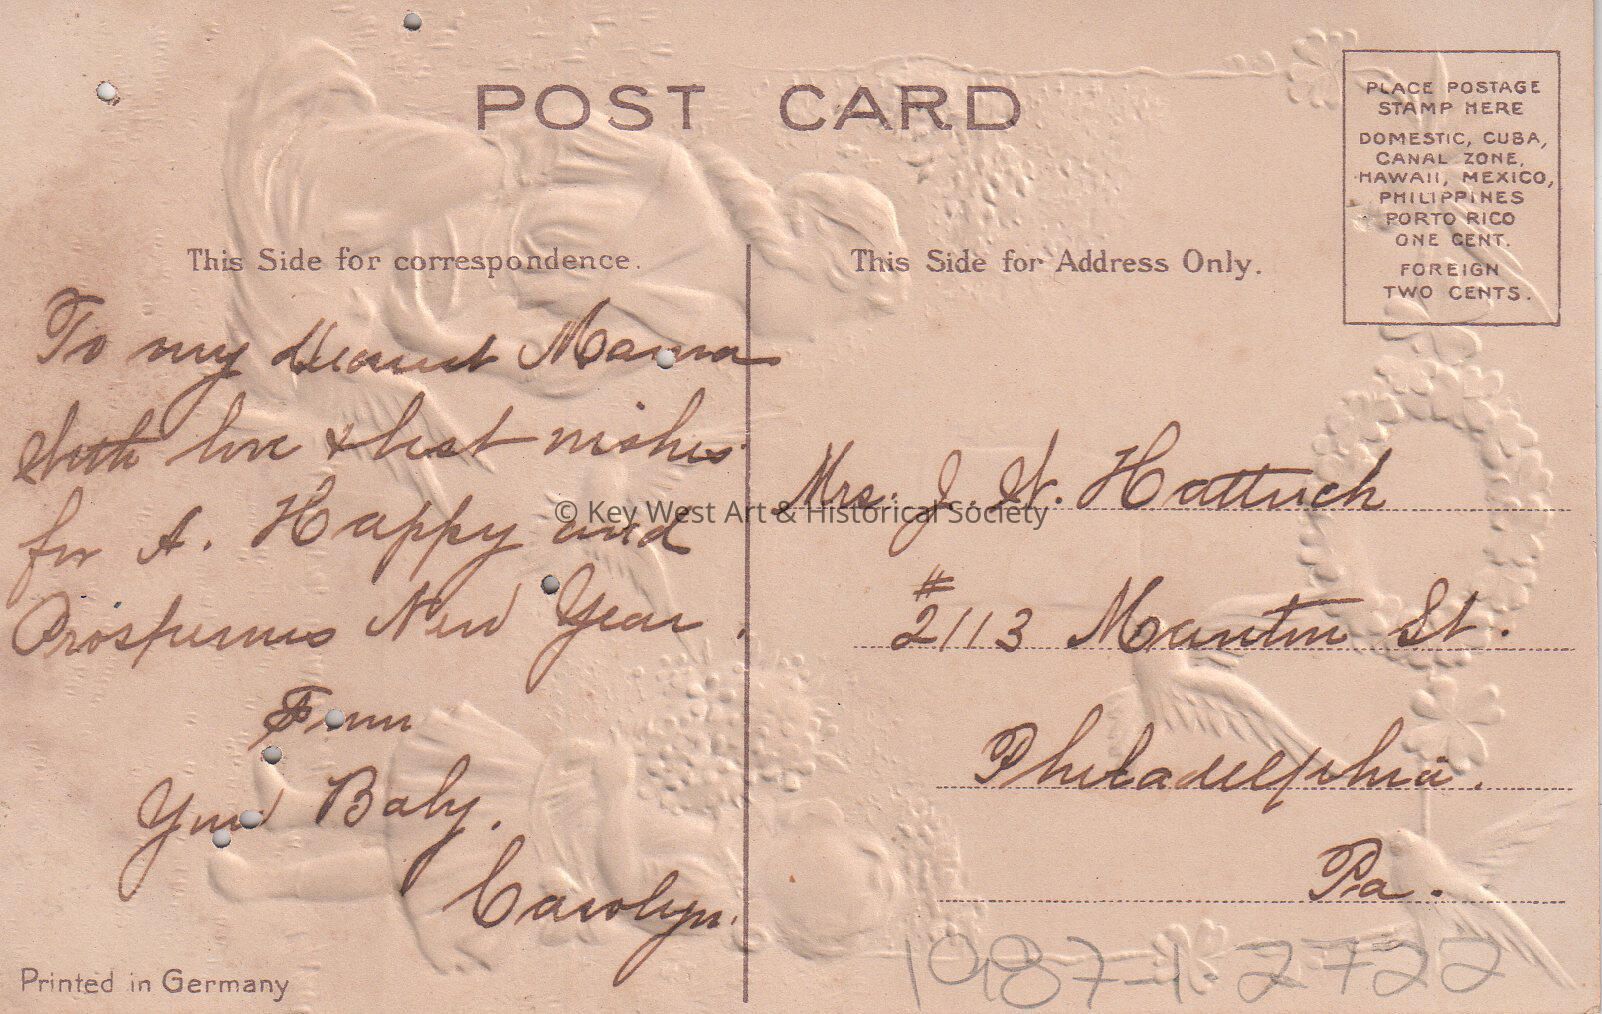 POST CARD
PLACE POSTAGE
STAMP HERE
DOMESTIC, CUBA,
CANAL ZONE,
HAWAII, MEXICO,
PHILIPPINES
PORTO RICO
ONE CENT.
FOREIGN
TWO CENTS.
This Side for correspondence.
To my dearest Mama
With love & best wishes
for A. Happy and
Prosperous New Year.
From
Your Baby.
Carolyn.
Printed in Germany
This Side for Address Only.
Mrs. J. W.
#
2113 Manton St.
Philadelphia.
Pa.
1987-1-2722
© Key West Art & Historical Society